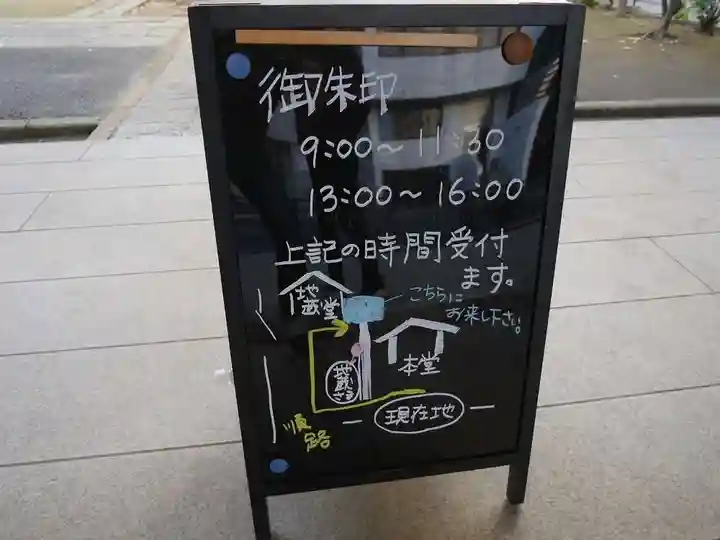 御朱印
9:00～11:30
13:00～16:00
上記の時間受付
ます。
地蔵堂
こちらに
お来し下さい。
本堂
地蔵さま
現在地
順路